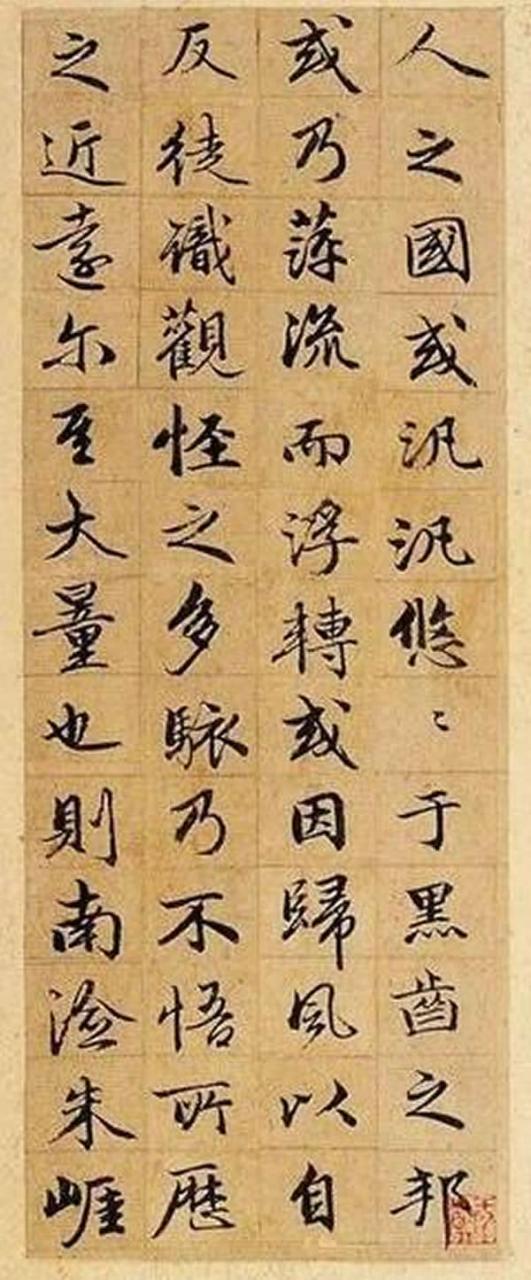 人之國或汎汎悠〻于黑齒之邦
或乃萍流而浮轉或因歸風以自
反徒識觀怪之多駭乃不悟所歷
之近遠尔至大量也則南澰朱崕